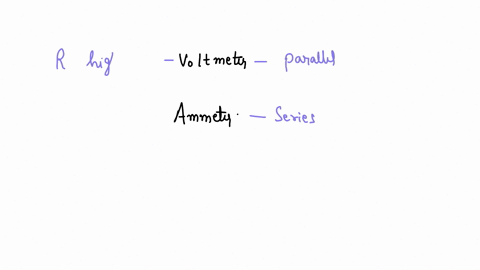 R hig - Voltmety - parallel
Ammety. - Series